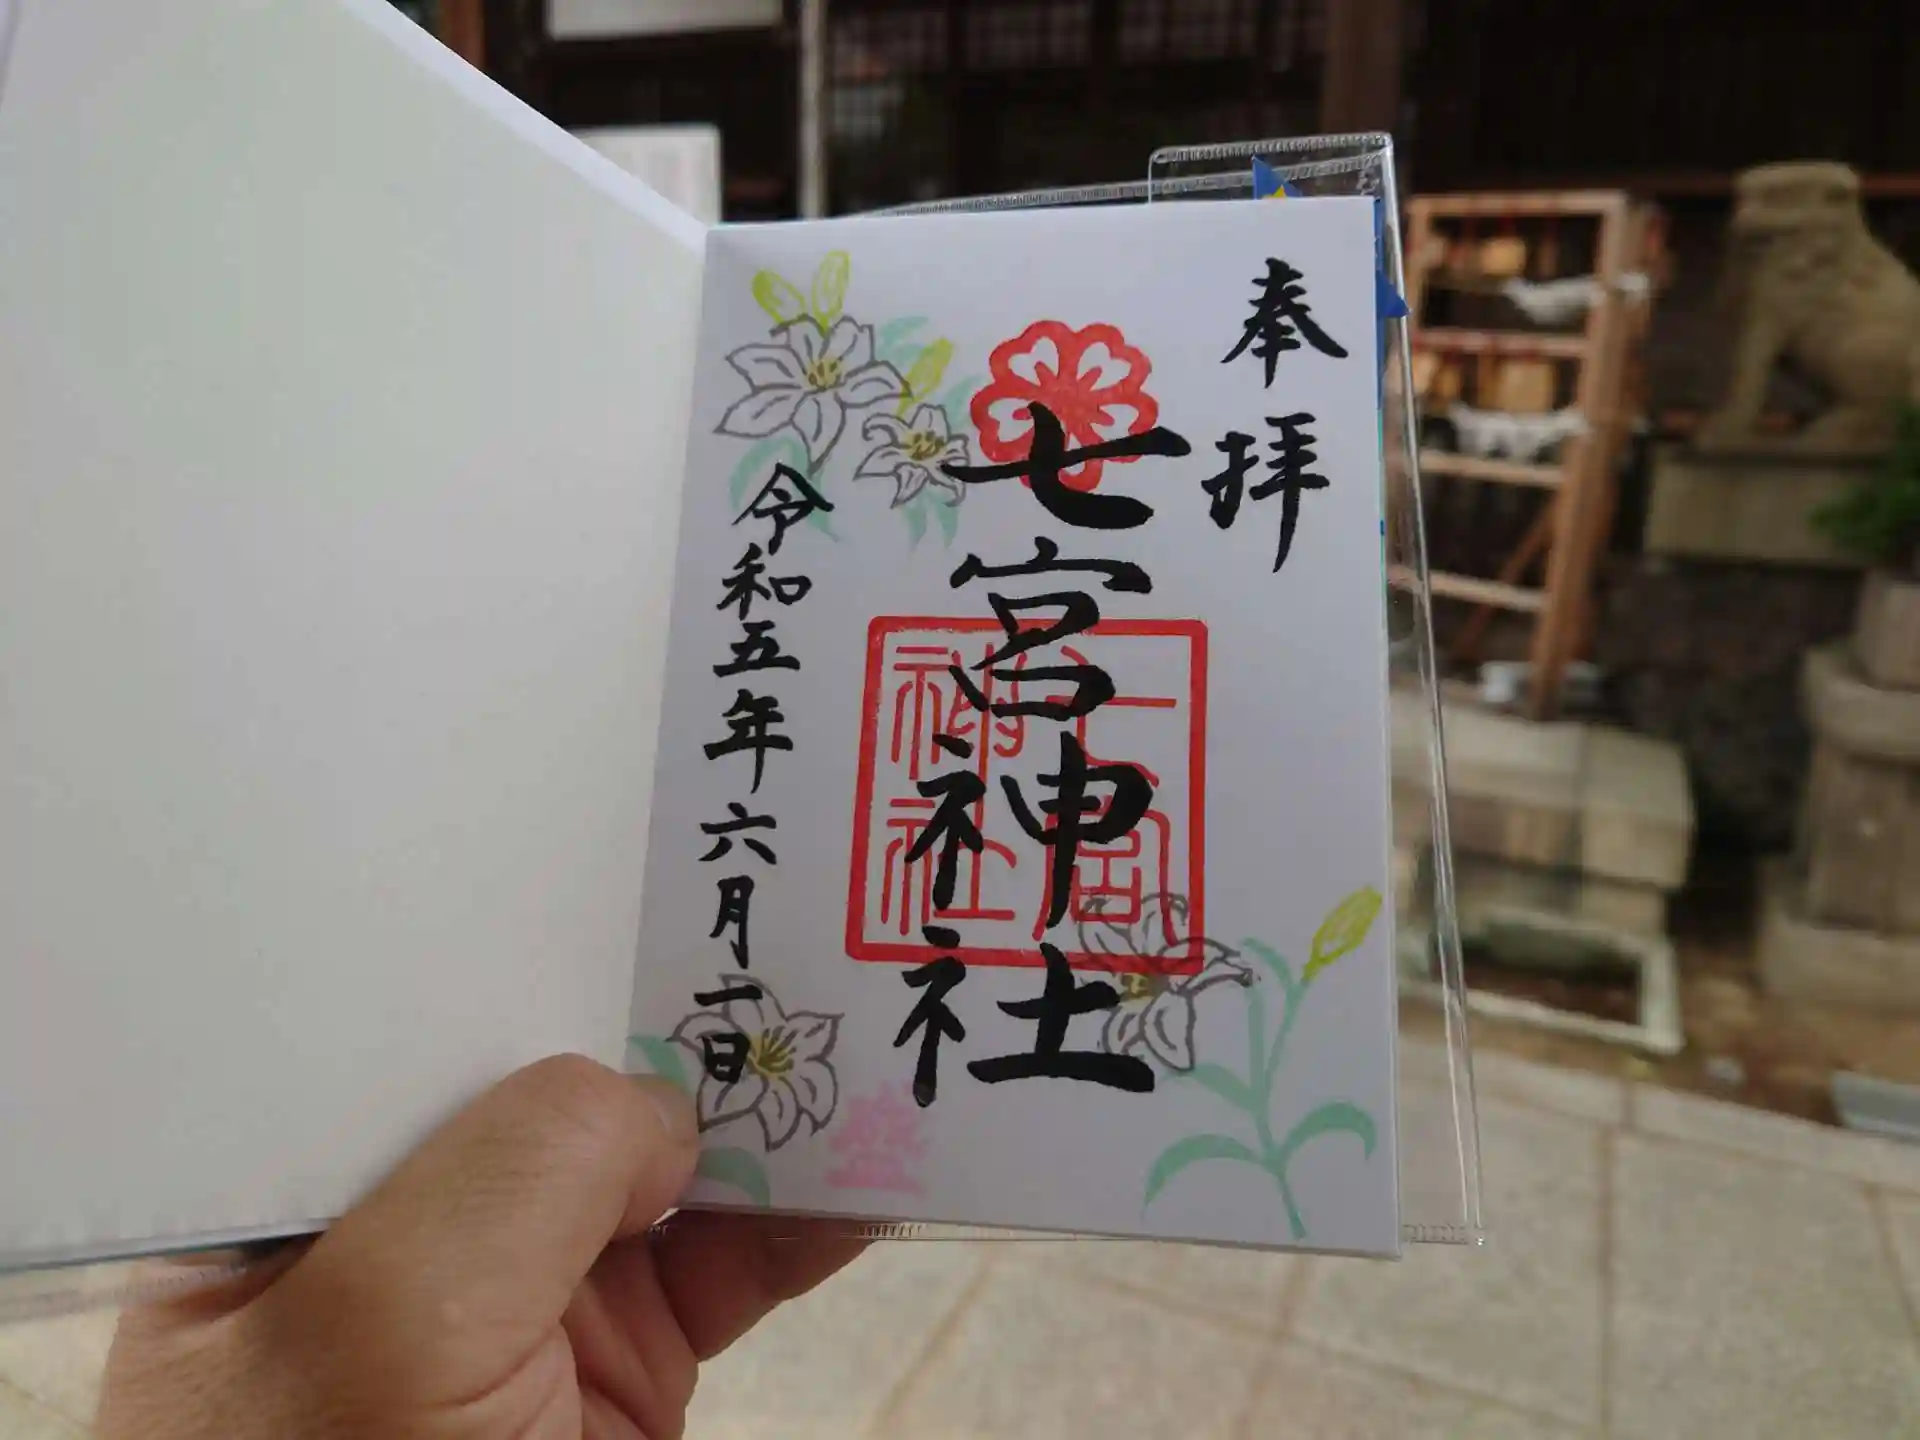 奉拝
七宮神社
七宮
神社
令和五年六月一日